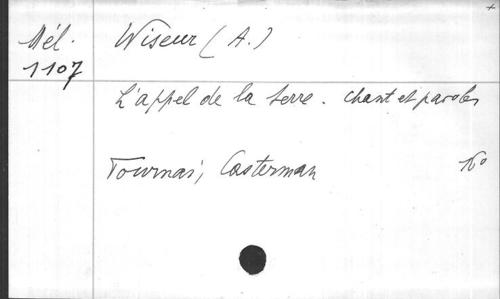 Mél. Wiseur (A.)
1107
L'appel de la terre. Chant et paroles
Tournai, Casterman